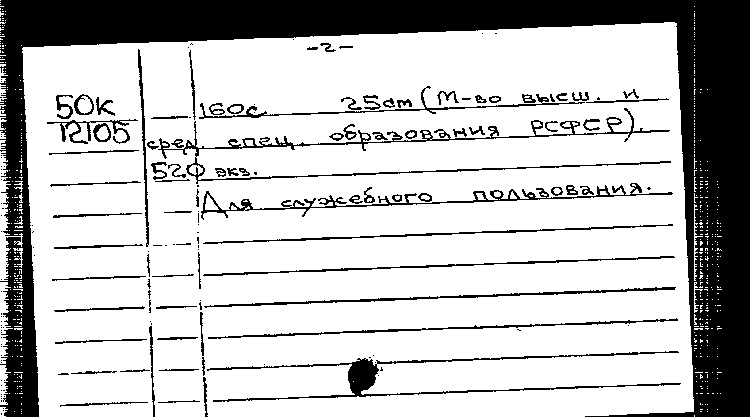 -2-
50к
12105
160с. 25см (М-во высш. и
сред. спец. образования РСФСР).
520 экз.
Для служебного пользования.